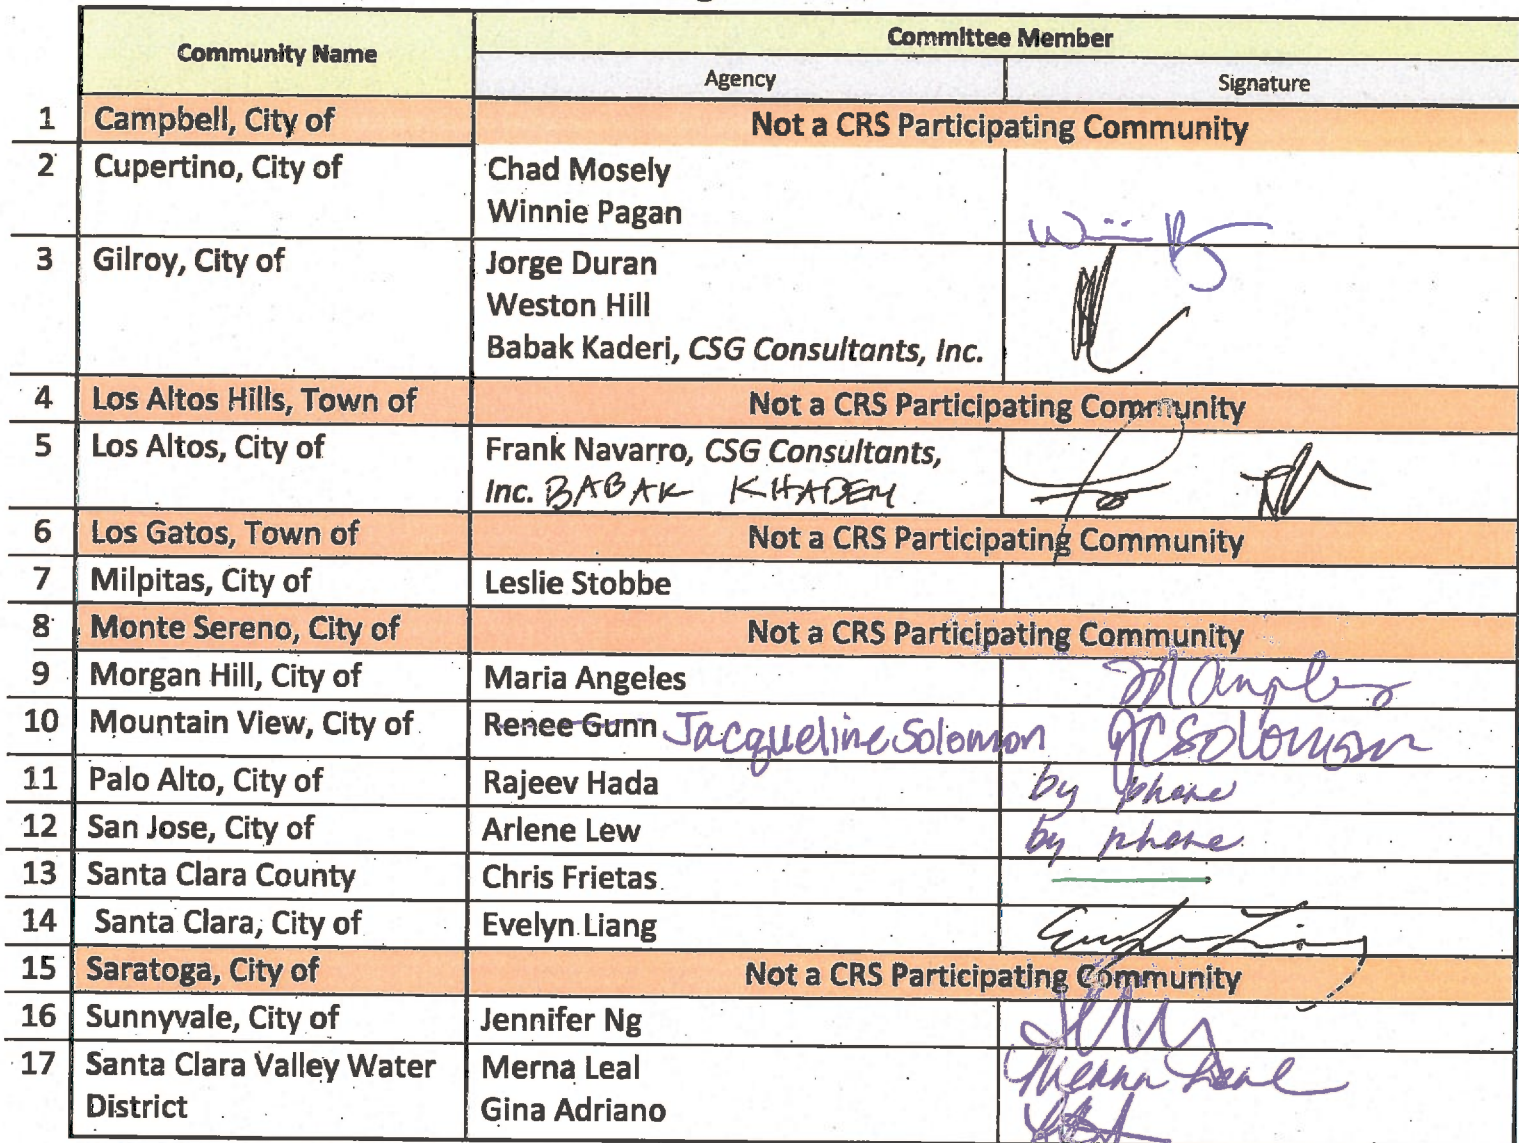 Community Name
Committee Member
Agency
Signature
1 Campbell, City of Not a CRS Participating Community
2 Cupertino, City of Chad Mosely
Winnie Pagan
3 Gilroy, City of Jorge Duran
Weston Hill
Babak Kaderi, CSG Consultants, Inc.
4 Los Altos Hills, Town of Not a CRS Participating Community
5 Los Altos, City of Frank Navarro, CSG Consultants,
Inc. BABAK KHADEM
6 Los Gatos, Town of Not a CRS Participating Community
7 Milpitas, City of Leslie Stobbe
8 Monte Sereno, City of Not a CRS Participating Community
9 Morgan Hill, City of Maria Angeles
10 Mountain View, City of Renee Gunn Jacqueline Solomon JCSolomon
11 Palo Alto, City of Rajeev Hada by phone
12 San Jose, City of Arlene Lew by phone
13 Santa Clara County Chris Frietas
14 Santa Clara, City of Evelyn Liang
15 Saratoga, City of Not a CRS Participating Community
16 Sunnyvale, City of Jennifer Ng
17 Santa Clara Valley Water Merna Leal Merna Leal
District Gina Adriano